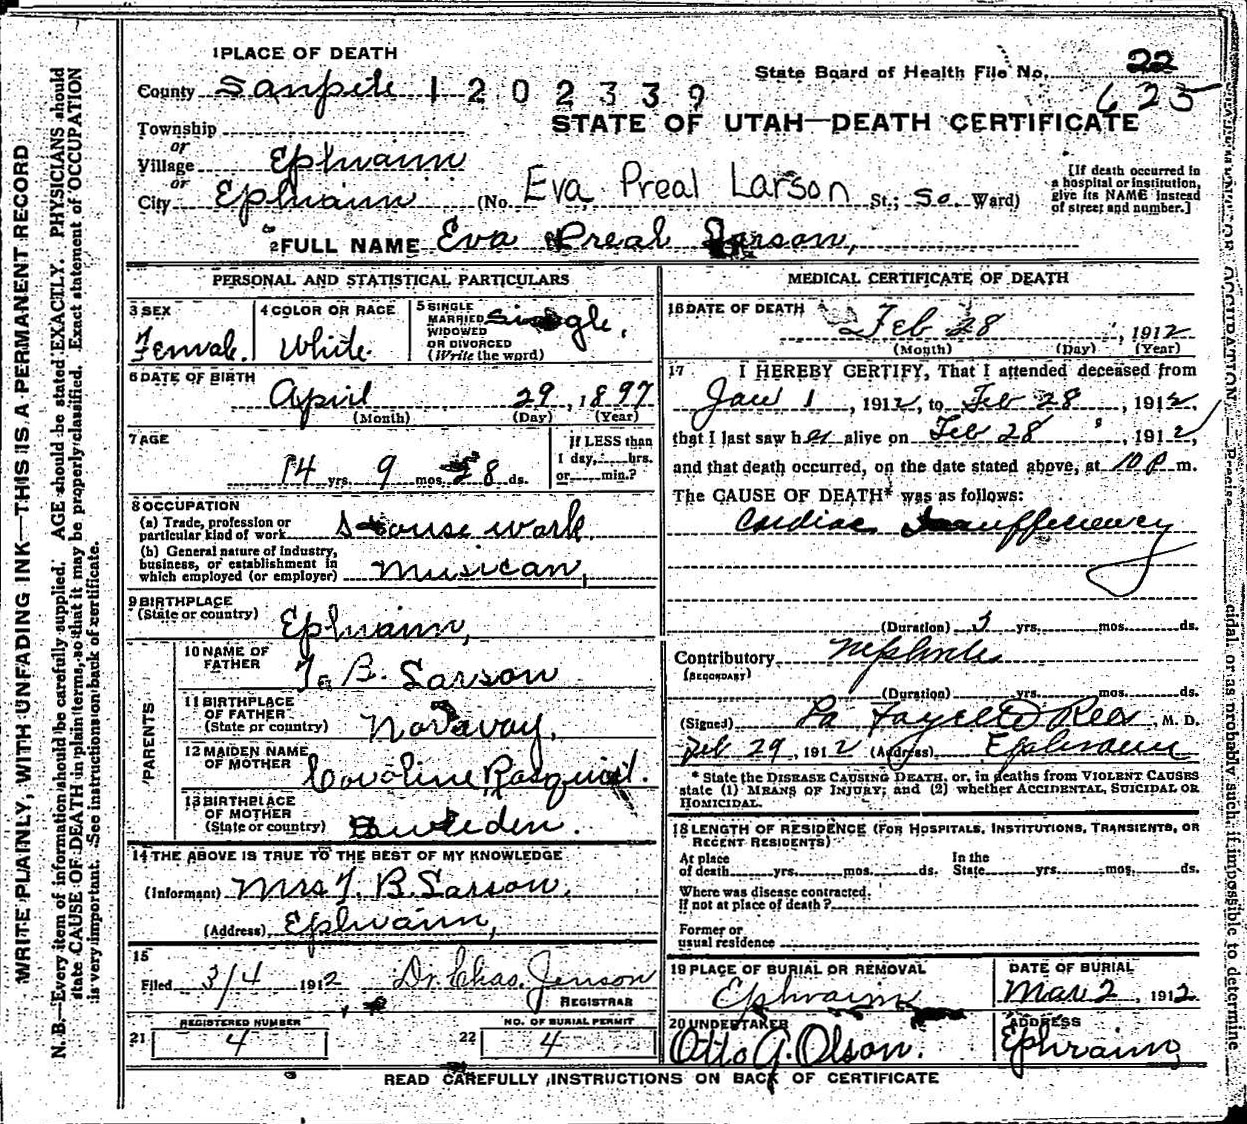 1 PLACE OF DEATH
County Sanpete 1 202339
State Board of Health File No. 22
625
STATE OF UTAH—DEATH CERTIFICATE
Township
or
Village Ephraim
or
City Ephraim (No. Eva Preal Larson St.; So. Ward)
[If death occurred in a hospital or institution, give its NAME instead of street and number.]
2 FULL NAME Eva Preal Larson,
PERSONAL AND STATISTICAL PARTICULARS
3 SEX Female.
4 COLOR OR RACE White
5 SINGLE MARRIED WIDOWED OR DIVORCED (Write the word) single,
6 DATE OF BIRTH April 29, 1897
(Month) (Day) (Year)
7 AGE 14 yrs. 9 mos. 28 ds.
If LESS than 1 day, hrs. or min.?
8 OCCUPATION
(a) Trade, profession or particular kind of work House work
(b) General nature of industry, business, or establishment in which employed (or employer) Musican,
9 BIRTHPLACE (State or country) Ephraim,
PARENTS
10 NAME OF FATHER B. Larson
11 BIRTHPLACE OF FATHER (State or country) Noravay,
12 MAIDEN NAME OF MOTHER Caroline Rasquist.
13 BIRTHPLACE OF MOTHER (State or country) Sweden.
14 THE ABOVE IS TRUE TO THE BEST OF MY KNOWLEDGE
(Informant) Mrs J. B. Larson,
(Address) Ephraim,
15 Filed 3/4 1912 Dr. Chas. Jenson
REGISTRAR
21 REGISTERED NUMBER 4
22 NO. OF BURIAL PERMIT 4
MEDICAL CERTIFICATE OF DEATH
16 DATE OF DEATH Feb 28, 1912
(Month) (Day) (Year)
17 I HEREBY CERTIFY, That I attended deceased from
Jan 1, 1912, to Feb 28, 1912,
that I last saw her alive on Feb 28, 1912,
and that death occurred, on the date stated above, at 10 P m.
The CAUSE OF DEATH* was as follows:
Cardiac Insufficiency
(Duration) 3 yrs. mos. ds.
Contributory Nephritis
(SECONDARY)
(Duration) yrs. mos. ds.
(Signed) La Fayette Rees, M. D.
Feb 29, 1912 (Address) Ephraim
* State the DISEASE CAUSING DEATH, or, in deaths from VIOLENT CAUSES state (1) MEANS OF INJURY; and (2) whether ACCIDENTAL, SUICIDAL OR HOMICIDAL.
18 LENGTH OF RESIDENCE (FOR HOSPITALS, INSTITUTIONS, TRANSIENTS, OR RECENT RESIDENTS)
At place of death yrs. mos. ds. In the State yrs. mos. ds.
Where was disease contracted, If not at place of death?
Former or usual residence
19 PLACE OF BURIAL OR REMOVAL Ephraim
DATE OF BURIAL Mar 2, 1912
20 UNDERTAKER Otto G. Olson.
ADDRESS Ephraim
READ CAREFULLY INSTRUCTIONS ON BACK OF CERTIFICATE
WRITE PLAINLY, WITH UNFADING INK—THIS IS A PERMANENT RECORD
N. B.—Every item of information should be carefully supplied. AGE should be stated EXACTLY. PHYSICIANS should
state CAUSE OF DEATH in plain terms, so that it may be properly classified. Exact statement of OCCUPATION
is very important. See instructions on back of certificate.
cidal or as probably such if impossible to determine